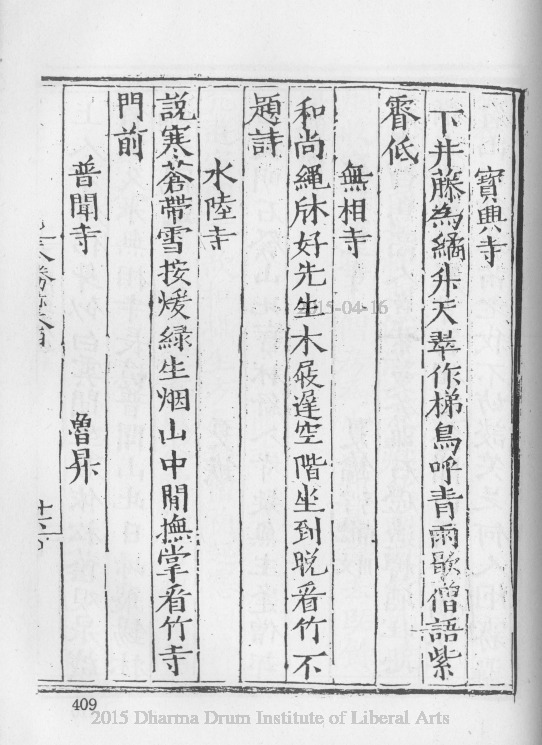 寶興寺
下井藤為繘升天翠作梯鳥呼青雨歇僧語紫
霄低
無相寺
和尚繩牀好先生木屐遲空階坐到晩看竹不
題詩
水陸寺
說寒蒼帶雪按煖綠生烟山中閒撫掌看竹寺
門前
普聞寺 魯昇
2015-04-16
409
2015 Dharma Drum Institute of Liberal Arts